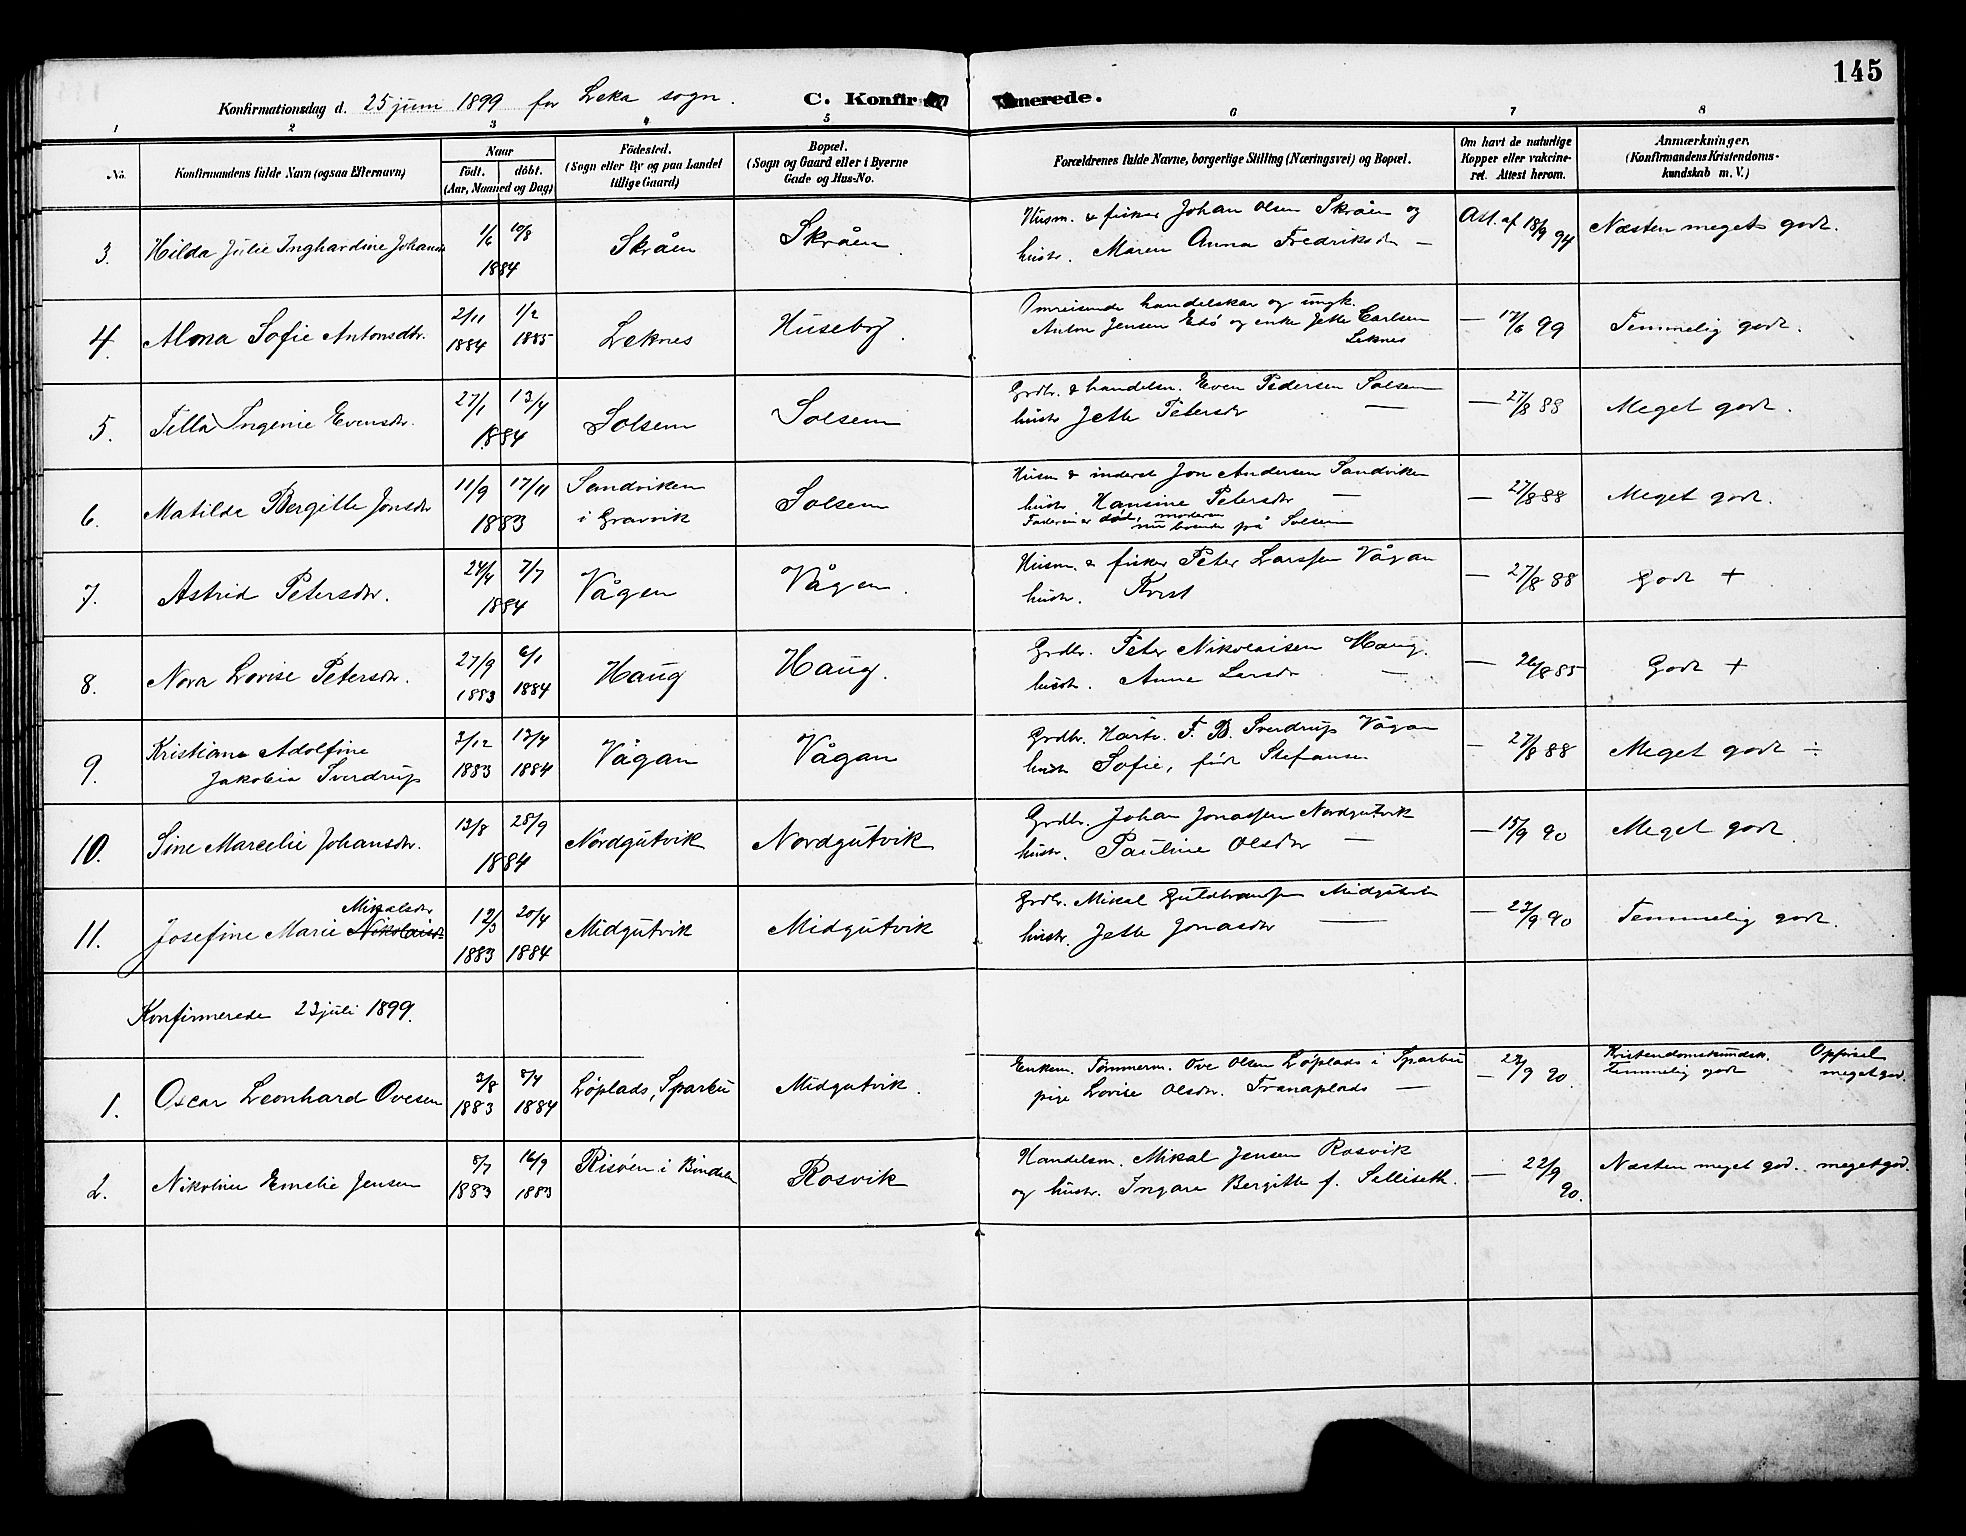 145
Konfirmationsdag d. 25 juni 1899 for Leka sogn. C. Konfir merede.
1 2 3 4 5 6 7 8
No. Konfirmandens fulde Navn (ogsaa Efternavn) Naar født. døbt. (Aar, Maaned og Dag) Fødested. (Sogn eller By og paa Landet tillige Gaard) Bopæl. (Sogn og Gaard eller i Byerne Gade og Hus-No. Forældrenes fulde Navne, borgerlige Stilling (Næringsvei) og Bopæl. Om havt de naturlige Kopper eller vakcineret. Attest herom. Anmærkninger. (Konfirmandens Kristendomskundskab m. V.)
3. Hilda Julie Inghardine Johansd 1/6 10/8 1884 Skråen Skråen Husm. & fisker Johan Olsen Skråen og
hustr. Maren Anna Fredriksdr — Att. af 18/9 94 Næsten meget godt.
4. Alma Sofie Antonsdtr. 2/11 1884 1/2 1885 Leknes Huseby Omreisende handelskar og ungk.
Anton Jensen Edø og enke Jette Carlsen
Leknes — 17/6 99 Temmelig godt.
5. Tella Ingenie Evensdr. 27/1 13/4 1884 Solsem Solsem Grdbr. & handelsm. Even Pedersen Solsem
hustr Jette Petersdr — — 27/8 88 Meget godt.
6. Matilde Bergitte Jonsdr 11/9 17/11 1883 Sandviken
i Gravvik Solsem Husm & inderst Jon Andersen Sandviken
hustr. Hansine Petersdr —
Faderen er død, moderen
nu boende på Solsem — 27/8 88 Meget godt.
7. Astrid Petersdr. 24/4 7/7 1884 Vågen Vågen. Husm. & fisker Peter Larssen Vågan
hustr. Krist — 27/8 88 Godt +
8. Nora Lovise Petersdr. 27/9 1883 6/1 1884 Haug Haug. Grdbr. Peter Nikolaisen Haug.
hustr. Anna Larsdr — — 26/8 85 Godt +
9. Kristiane Adolfine
Jakobia Sverdrup 3/12 1883 13/4 1884 Vågan Vågan Grdbr. Hartv. F. B. Sverdrup Vågan
hustr Sofie, født Stefansen — 27/8 88 Meget godt ÷
10. Sine Marcelie Johansdr. 13/8 28/9 1884 Nordgutvik Nordgutvik Grdbr. Johan Jonassen Nordgutvik
hustr. Pauline Olsdr — — 15/9 90 Meget godt.
11. Josefine Marie Nikolaisdr Mikalsdr 12/3 1883 20/4 1884 Midgutvik Midgutvik Grdbr. Mikal Guldbransen Midgutvik
hustr. Jette Jonasdr — — 23/9 90 Temmelig godt.
Konfirmerede 23 juli 1899.
1. Oscar Leonhard Ovesen 3/8 1883 8/4 1884 Løplads, Sparbu Midgutvik. Enkem. Tømmerm. Ove Olsen Løplads i Sparbu
pige Lovise Olsdr. Tranaplads — — 23/9 90. Kristendomskundsk. Opførsel
Temmelig godt meget god.
2. Nikoline Emelie Jensen 8/7 1883 16/9 1883 Risøen i Bindalen Rosvik Handelsm. Mikal Jensen Rosvik
og hustr. Ingara Bergitte f. Selliseth. — 22/9 90. Næsten meget god. meget god.